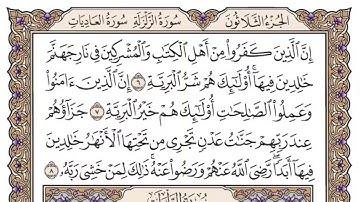 الجزء الثلاثون سورة الزلزلة سورة العاديات
إِنَّ الَّذِينَ كَفَرُوا مِنْ أَهْلِ الْكِتَابِ وَالْمُشْرِكِينَ فِي نَارِ جَهَنَّمَ
خَالِدِينَ فِيهَا أُوْلَٰئِكَ هُمْ شَرُّ الْبَرِيَّةِ ٦ إِنَّ الَّذِينَ ءَامَنُوا
وَعَمِلُوا الصَّالِحَاتِ أُوْلَٰئِكَ هُمْ خَيْرُ الْبَرِيَّةِ ٧ جَزَاؤُهُمْ
عِندَ رَبِّهِمْ جَنَّاتُ عَدْنٍ تَجْرِي مِن تَحْتِهَا الْأَنْهَارُ خَالِدِينَ
فِيهَا أَبَدًا رَّضِيَ اللَّهُ عَنْهُمْ وَرَضُوا عَنْهُ ذَٰلِكَ لِمَنْ خَشِيَ رَبَّهُ ٨